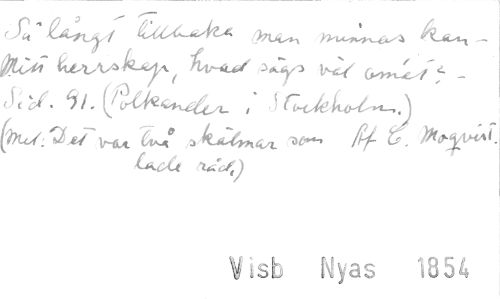 Så långt tillbaka man minnas kan –
Mitt herrskap, hvad sägs väl om det? –
Sid. 91. (Polkander i Stockholm.)
(Mel. Det var två skälmar som Af C. Moqvist.
lade råd.)
Visb Nyas 1854